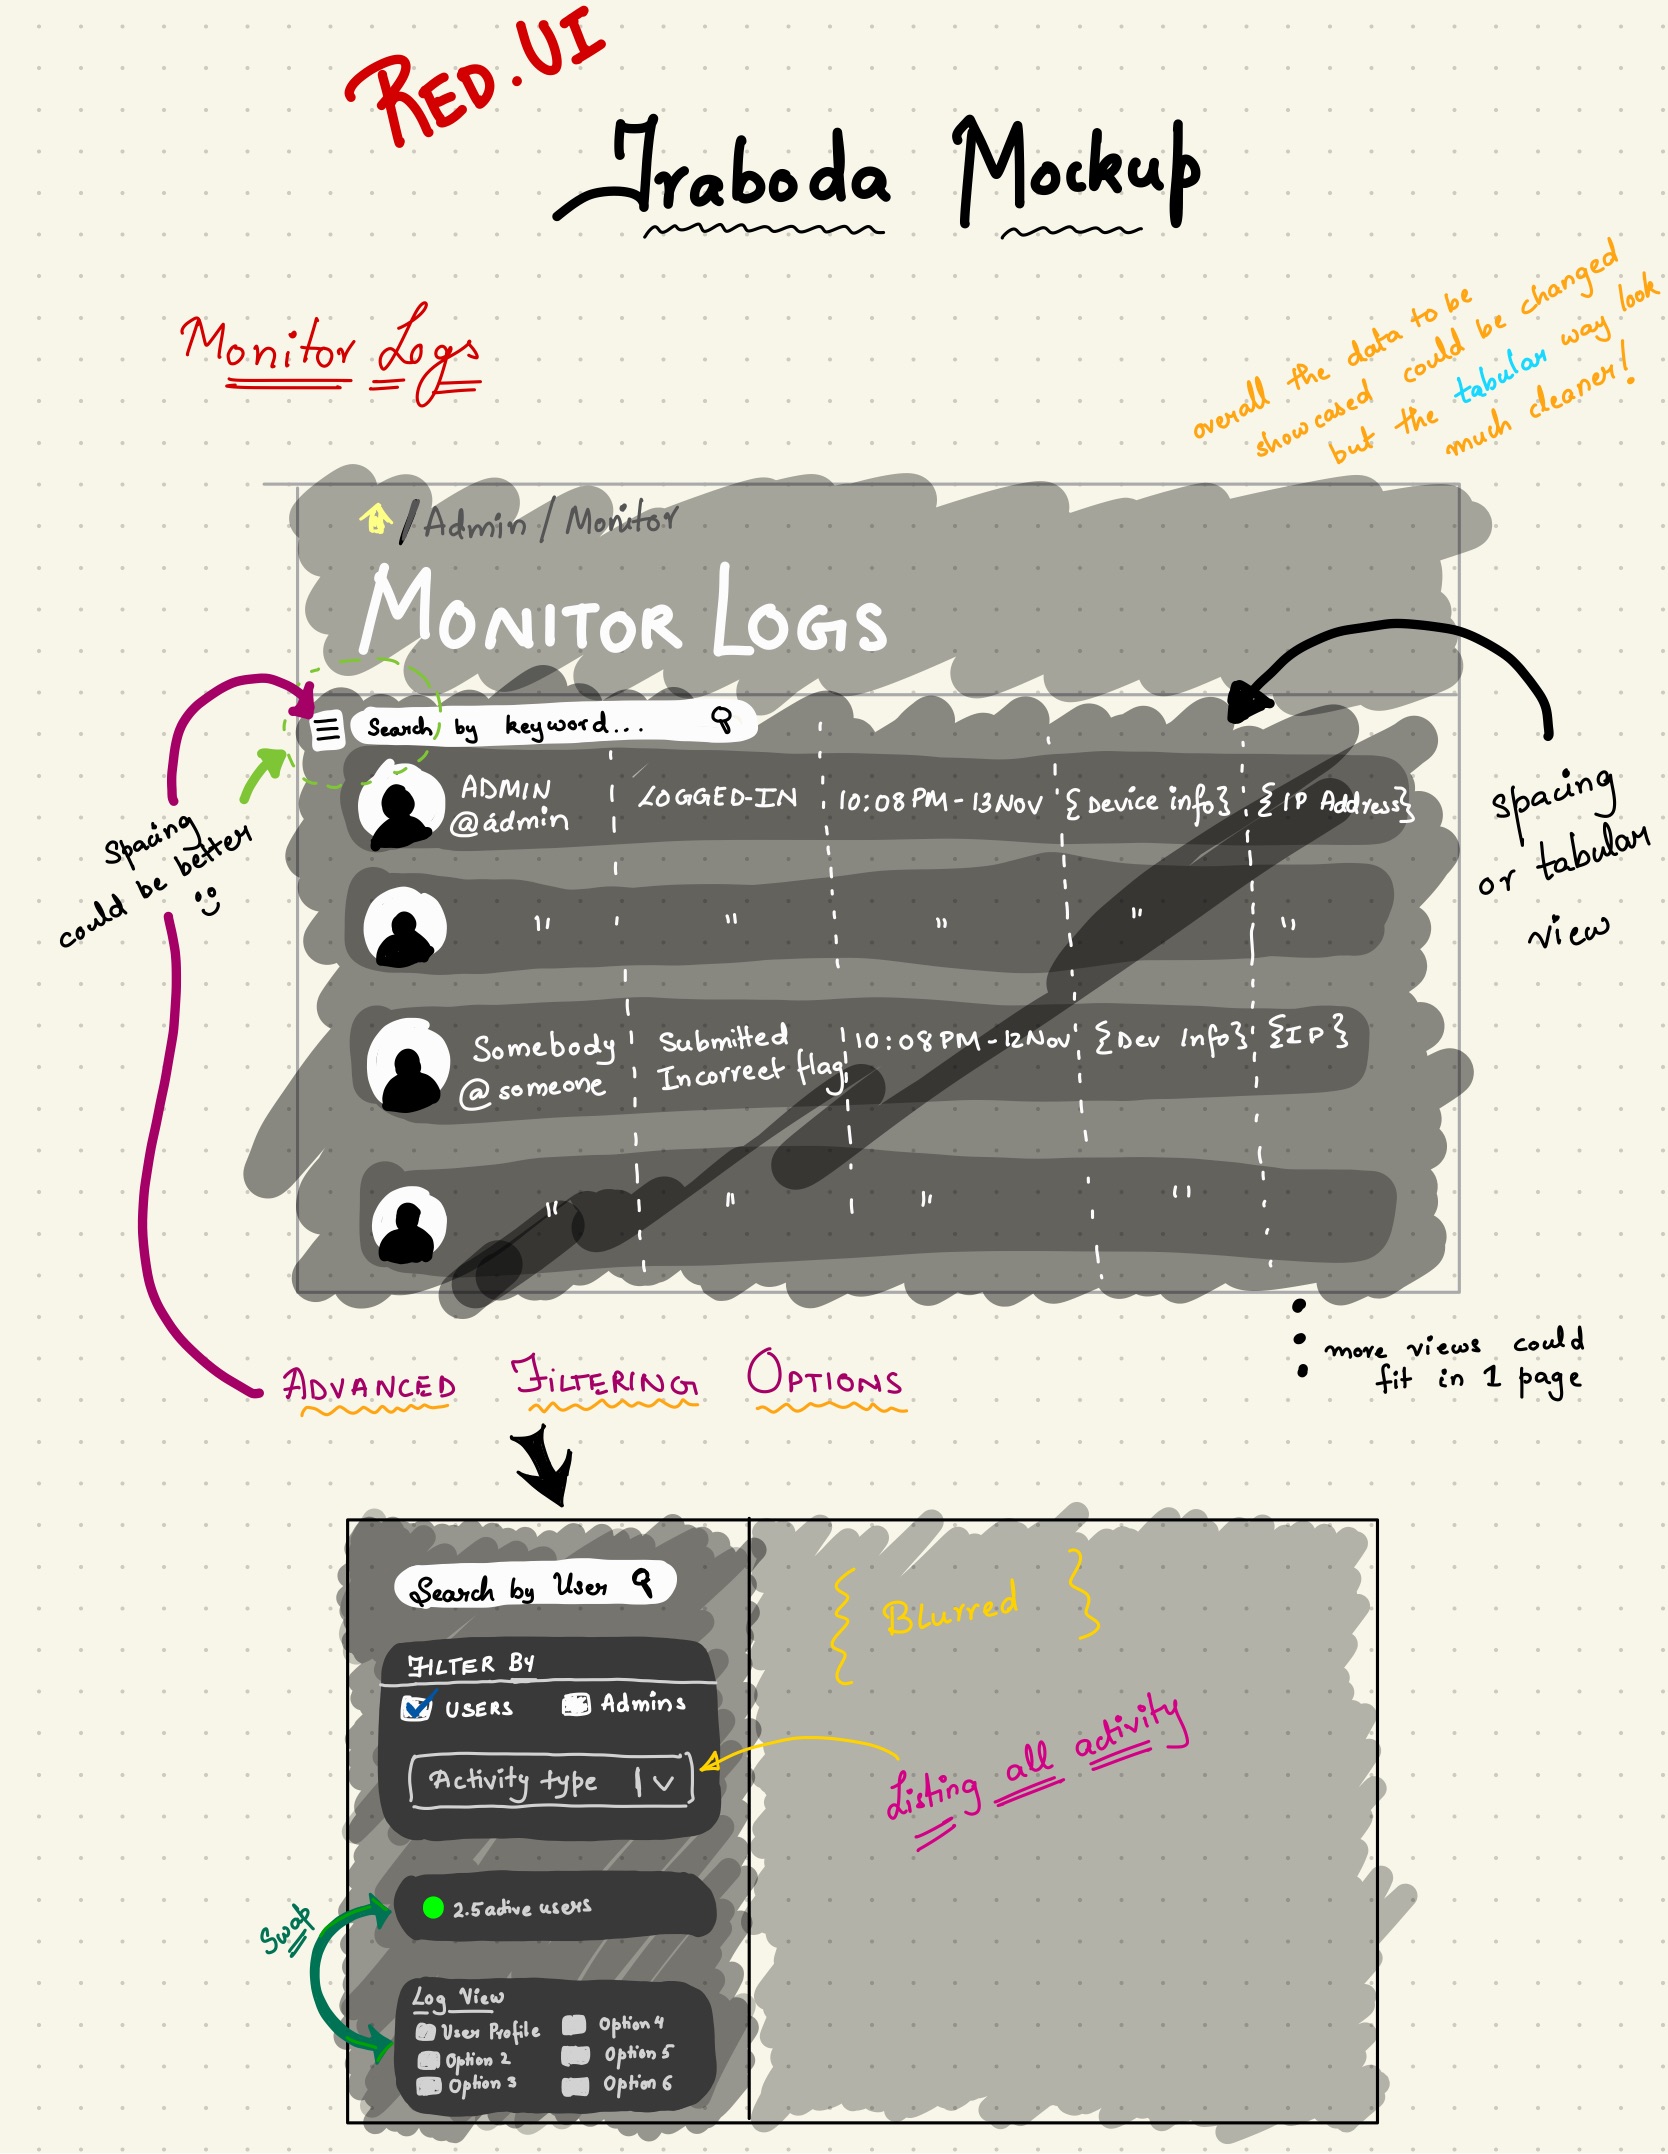 RED.UI
Traboda Mockup
Monitor Logs
overall the data to be
showcased could be changed
but the tabular way look
much cleaner!
/ Admin / Monitor
MONITOR LOGS
Search by keyword...
ADMIN
@admin
LOGGED-IN
10:08 PM - 13 NOV
{Device info}
{IP Address}
" " " " "
Somebody
@someone
Submitted
Incorrect flag
10:08 PM - 12 Nov
{Dev Info}
{IP}
" " " "
Spacing
could be better
Spacing
or tabular
view
more views could
fit in 1 page
ADVANCED FILTERING OPTIONS
Search by User
FILTER BY
USERS
Admins
Activity type
{ Blurred }
Listing all activity
2.5 active users
Swap
Log View
User Profile
Option 4
Option 2
Option 5
Option 3
Option 6